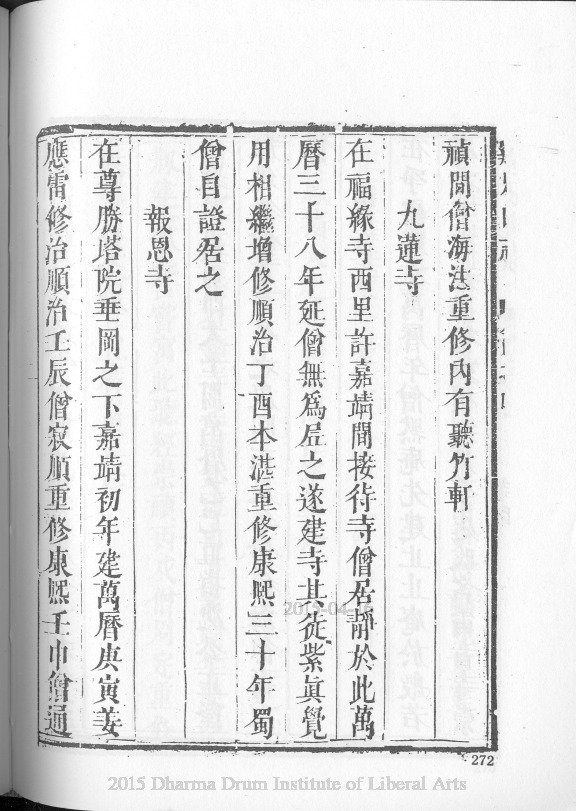 禎間僧海法重修內有聽竹軒
九蓮寺
在福緣寺西里許嘉靖間接待寺僧居靜於此萬
曆三十八年延僧無爲居之遂建寺其徒紫眞覺
用相繼增修順治丁酉本湛重修康熙三十年蜀
僧自證居之
報恩寺
在尊勝塔院垂岡之下嘉靖初年建萬曆庚寅姜
應雷修治順治壬辰僧寂順重修康熙壬申僧通
272
2015-04-16
2015 Dharma Drum Institute of Liberal Arts